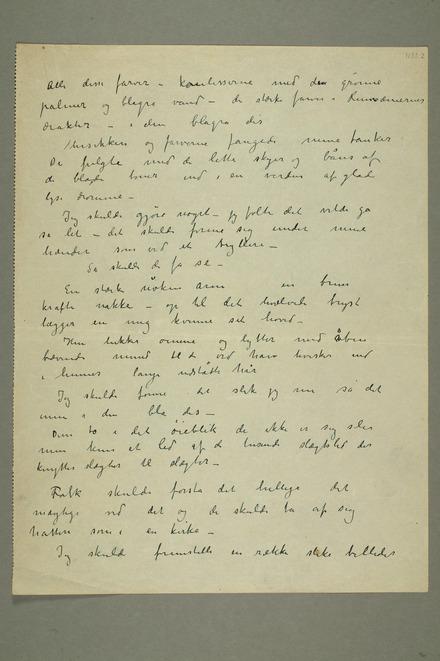 Alle disse farver – Koulisserne med den grønne
palmer og blågra vand – de stærke farver i Rumænernes
drakter – i den blagra dis
Musikken og farverne fangede mine tanker
De fulgte med de lette skyer og båres af
de bløde toner ind i en verden af glad
lyse dromme –
Jeg skulde gjöre noget – jeg folte det vilde ga
sa let – det skulde forme sig under mine
hænder som ved et trylleri –
Sa skulde de fa se –
En stærk nöken arm en brun
kraftig nakke – op til det hvælvede bryst
lægger en ung kvinne sit hoved –
Hun lukker oinene og lytter med åben
bævende mund til de ord han hvisker ind
i hennes lange udslåtte hår
Jeg skulde forme det slik jeg nu så det
men i den bla dis –
Disse to i det öieblik de ikke er sig selv
men kun et led af de tusende slægtsled der
knytter slægter til slægter –
Folk skulde forsta det hellige det
mægtige ved det og de skulde ta af sig
hatten som i en kirke –
Jeg skulde fremstille en række slike billeder